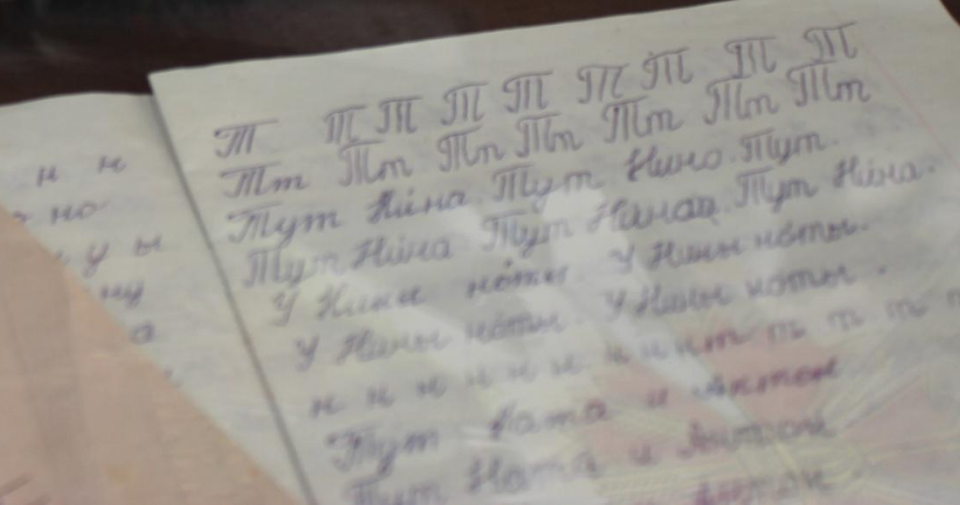 н н
но
у ы
ну
а
Т Т Т Т Т Т Т Т Т
Тт Тт Тт Тт Тт Тт Тт
Тут Нина. Тут Нина. Тут.
Тут Нина. Тут Нина. Тут Нина.
У Нины ноты. У Нины ноты.
У Нины ноты. У Нины ноты.
н н н н н н н н н т т т т т
Тут Ната и Антон
Тут Ната и Антон
Антон